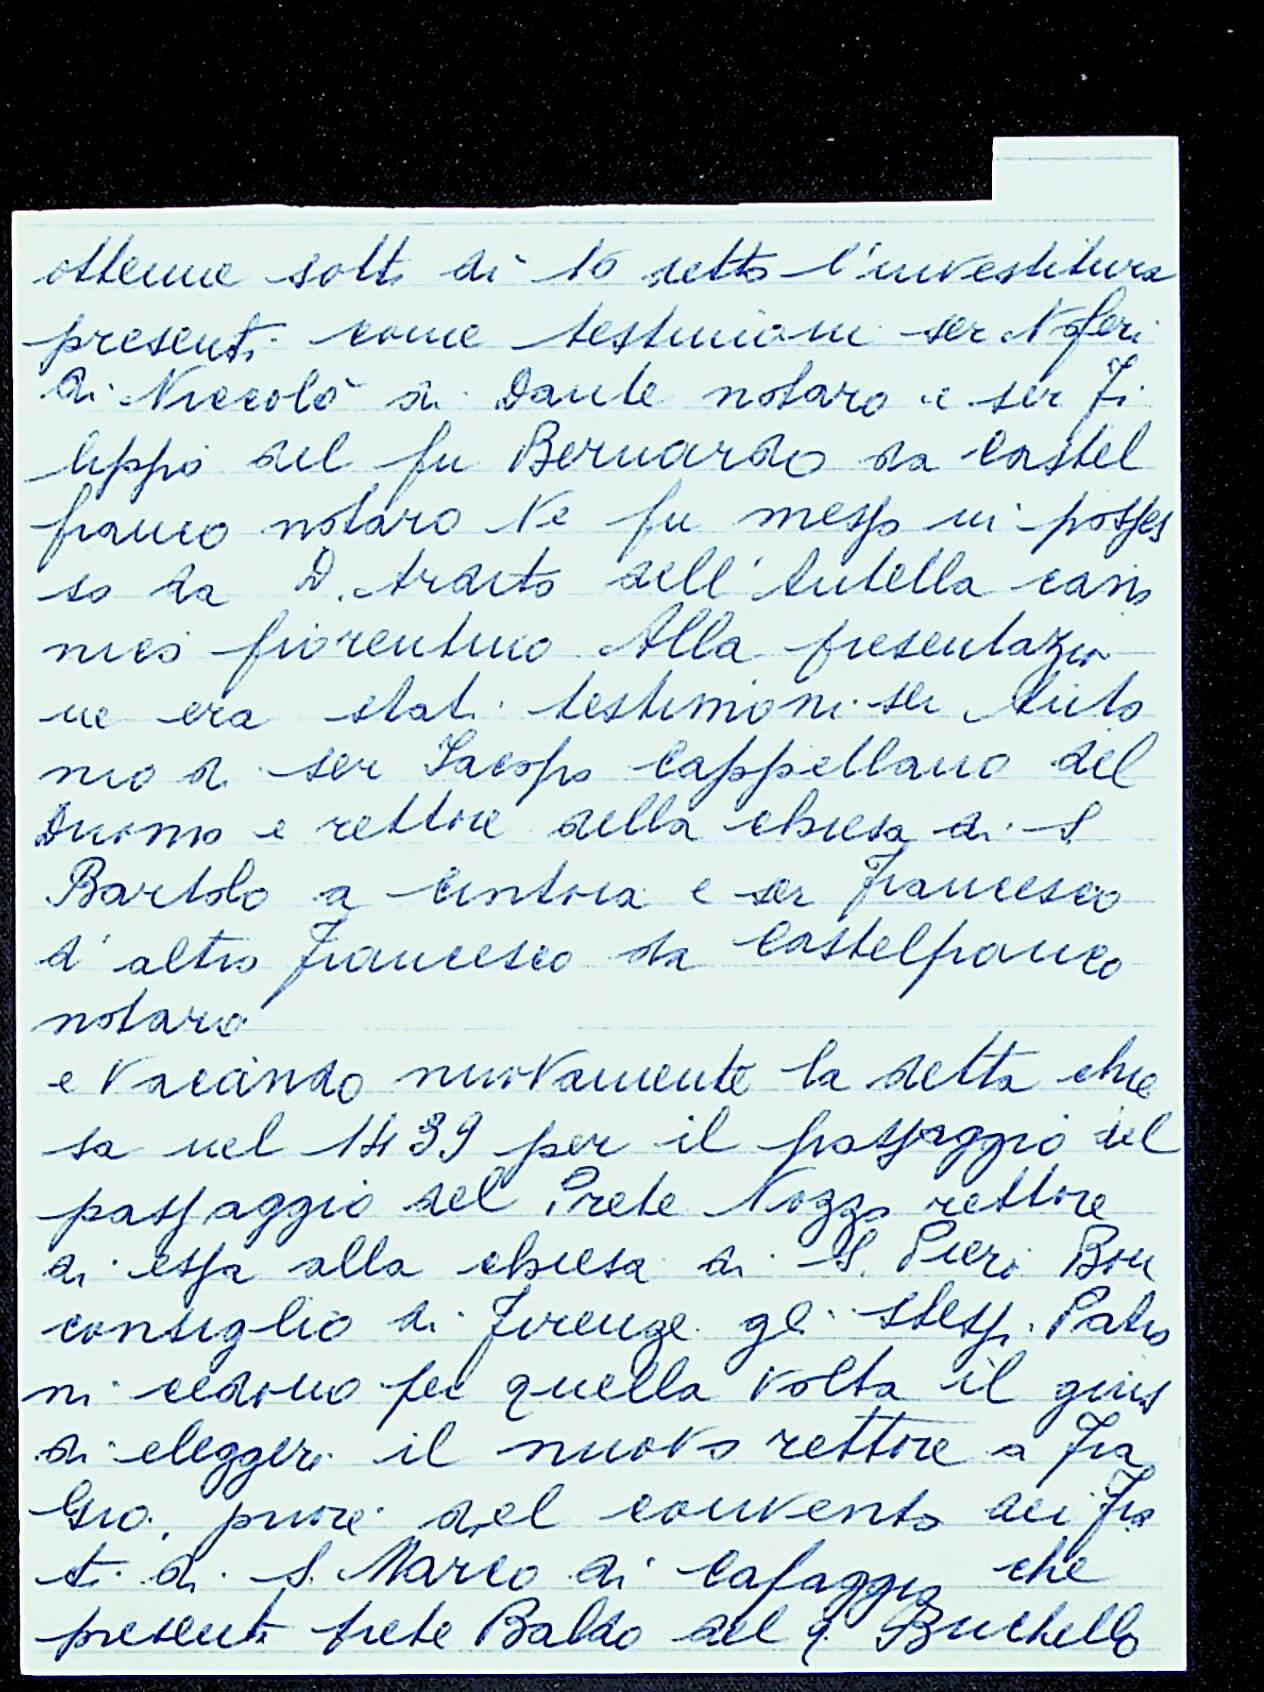 ottenne sotto di 10 detto l'investitura
presenti come testimoni ser Noferi
di Niccolò di Dante notaro e ser Fi
lippo del fu Bernardo da Castel
franco notaro Ne fu messo in posses
so da D. Arditto dell'Antella cano
nico fiorentino Alla presentazio
ne era stati testimoni ser Anto
nio di ser Jacopo Cappellano del
Duomo e rettore della chiesa di S
Bartolo a Cintoia e ser Francesco
d'altro Francesco da Castelfranco
notaro
e Vacando nuovamente la detta chie
sa nel 1439 per il passaggio del
passaggio del Prete Nozzo rettore
di essa alla chiesa di S. Piero Bon
consiglio di Firenze gli stessi Patro
ni cedono per quella volta il gius
di eleggere il nuovo rettore a Fra
Gio. priore del convento dei Fra
ti di S. Marco di Cafaggio che
presenta prete Baldo del q. Buchello